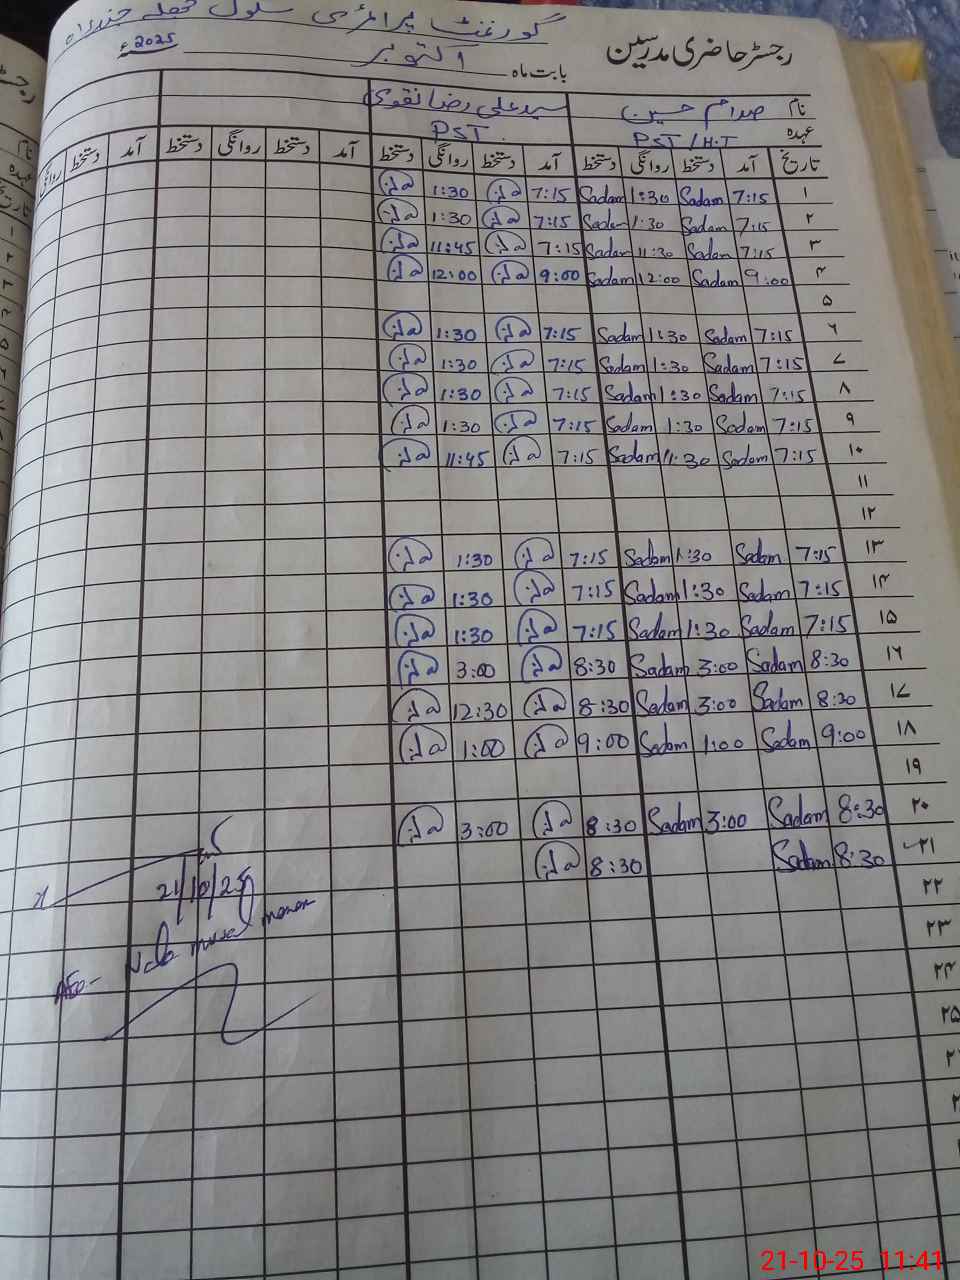 گورنمنٹ پرائمری سکول
رجسٹر حاضری مدرسین
بابت ماہ اکتوبر 2025ء
نام صدام حسین سید علی رضا نقوی
عہدہ PST/H.T PST
تاریخ آمد دستخط روانگی دستخط آمد دستخط روانگی دستخط آمد دستخط روانگی دستخط آمد دستخط روانگی
۱ 7:15 Sadam 1:30 Sadam 7:15 1:30
۲ 7:15 Sadam 1:30 Sadam 7:15 1:30
۳ 7:15 Sadam 11:30 Sadam 7:15 11:45
۴ 9:00 Sadam 12:00 Sadam 9:00 12:00
۵
۶ 7:15 Sadam 1:30 Sadam 7:15 1:30
۷ 7:15 Sadam 1:30 Sadam 7:15 1:30
۸ 7:15 Sadam 1:30 Sadam 7:15 1:30
۹ 7:15 Sadam 1:30 Sadam 7:15 1:30
۱۰ 7:15 Sadam 11:30 Sadam 7:15 11:45
۱۱
۱۲
۱۳ 7:15 Sadam 1:30 Sadam 7:15 1:30
۱۴ 7:15 Sadam 1:30 Sadam 7:15 1:30
۱۵ 7:15 Sadam 1:30 Sadam 7:15 1:30
۱۶ 8:30 Sadam 3:00 Sadam 8:30 3:00
۱۷ 8:30 Sadam 3:00 Sadam 8:30 12:30
۱۸ 9:00 Sadam 1:00 Sadam 9:00 1:00
۱۹
۲۰ 8:30 Sadam 3:00 Sadam 8:30 3:00
۲۱ 8:30 Sadam 8:30
۲۲
۲۳
۲۴
۲۵
21/10/25
21-10-25 11:41